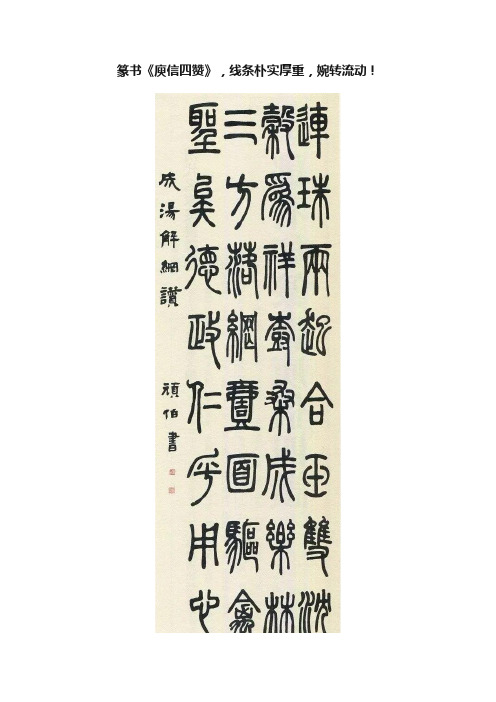 篆书《庾信四赞》，线条朴实厚重，婉转流动！
連珠兩起合玉雙沈
穀爲祥尌桑成樂林
三方落網壹面驅禽
聖矣德政仁乎用心
成湯解網讚 頑伯書